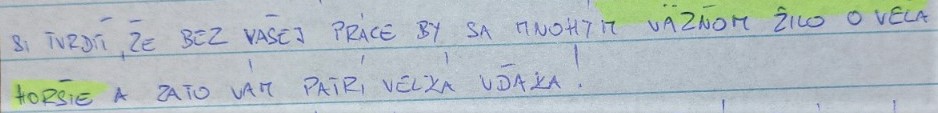 SI TVRDÍ, ŽE BEZ VAŠEJ PRÁCE BY SA MNOHÝM VÄZŇOM ŽILO O VEĽA
HORŠIE A ZATO VÁM PATRÍ VEĽKÁ VĎAKA!